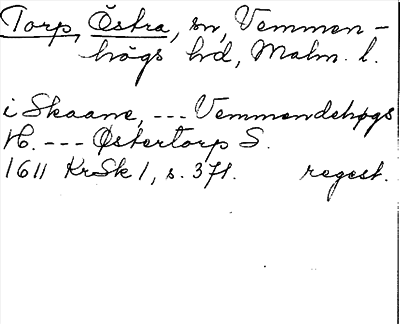 Torp, Östra, sn, Vemmen-
högs hd, Malm. l.
i Skaane, --- Vemmendehøgs
H. --- Østertorp S.
1611 KrSk 1, s. 371. regest.